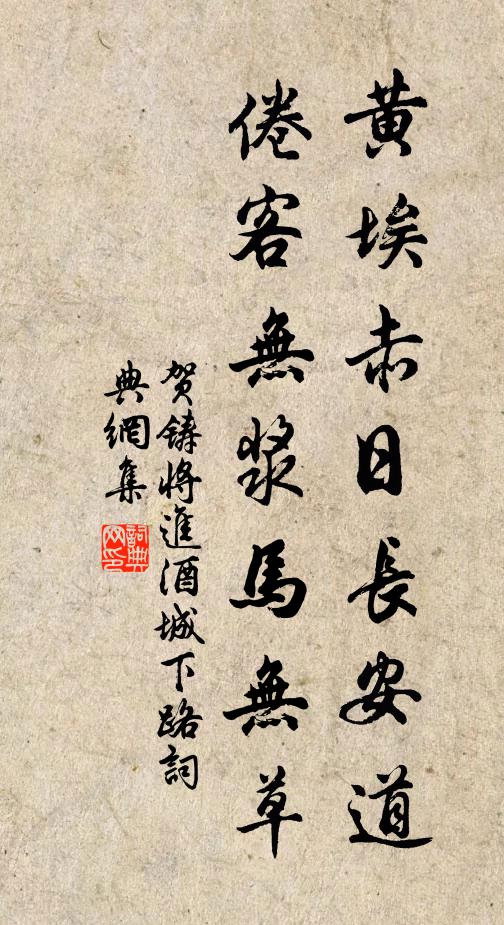 黄埃赤日長安道
倦客無漿馬無草
贺鑄將進酒城下路詞
典網集
詞典网印